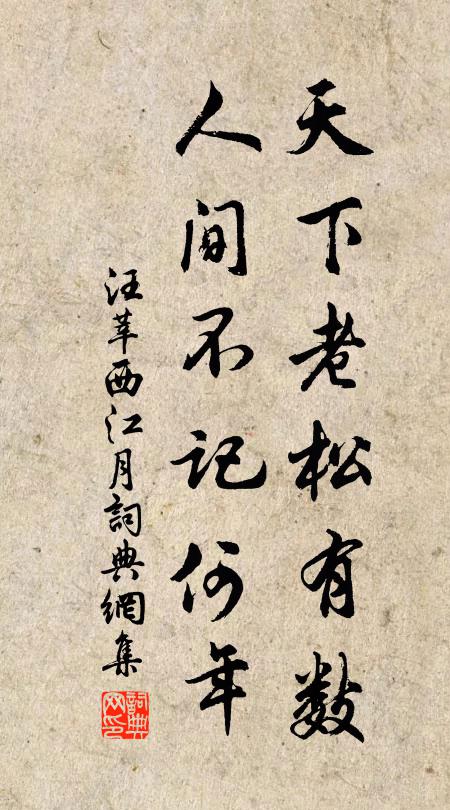 天下老松有数
人间不记何年
汪莘西江月詞典網集
詞典网印